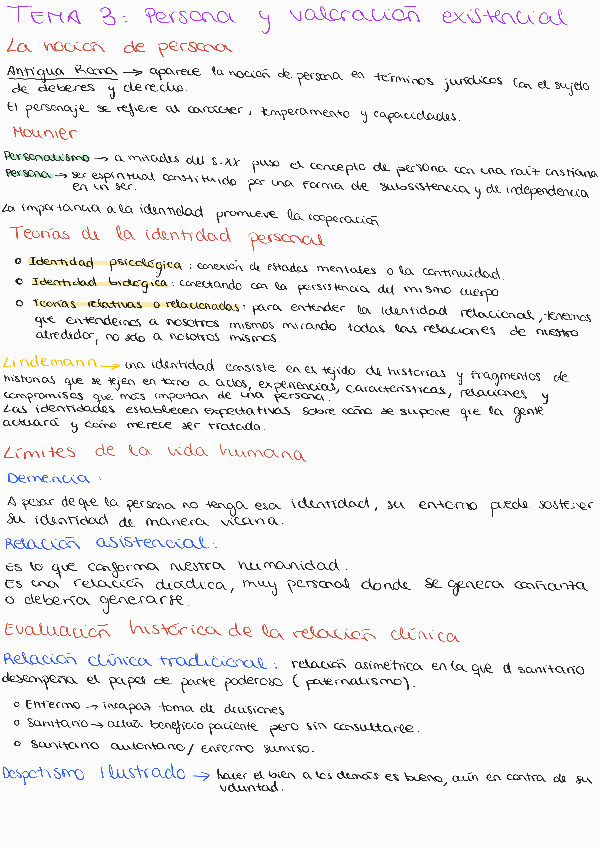 TEMA 3: Persona y valoración existencial
La noción de persona
Antigua Roma → aparece la noción de persona en términos jurídicos con el sujeto
de deberes y derecho.
El personaje se refiere al carácter, temperamento y capacidades.
Mounier
Personalismo → a mitades del s.XX puso el concepto de persona con una raíz cristiana
Persona → ser espiritual constituido por una forma de subsistencia y de independencia
en un ser.
La importancia a la identidad promueve la cooperación
Teorías de la identidad personal
o Identidad psicológica: conexión de estados mentales o la continuidad.
o Identidad biológica: conectando con la persistencia del mismo cuerpo
o Teorías relativas o relacionadas: para entender la identidad relacional, tenemos
que entendernos a nosotros mismos mirando todas las relaciones de nuestro
alrededor, no solo a nosotros mismos.
Lindemann → una identidad consiste en el tejido de historias y fragmentos de
historias que se tejen en torno a actos, experiencias, características, relaciones y
compromisos que más importan de una persona.
Las identidades establecen expectativas sobre cómo se supone que la gente
actuará y cómo merece ser tratada.
Límites de la vida humana
Demencia:
A pesar de que la persona no tenga esa identidad, su entorno puede sostener
su identidad de manera vicaria.
Relación asistencial:
Es lo que conforma nuestra humanidad.
Es una relación diádica, muy personal donde se genera confianza
o debería generarse.
Evaluación histórica de la relación clínica
Relación clínica tradicional: relación asimétrica en la que el sanitario
desempeña el papel de parte poderoso (paternalismo).
o Enfermo → incapaz toma de decisiones
o Sanitario → actúa beneficio paciente pero sin consultarle.
o Sanitario autoritario/ enfermo sumiso.
Despotismo ilustrado → hacer el bien a los demás es bueno, aún en contra de su
voluntad.